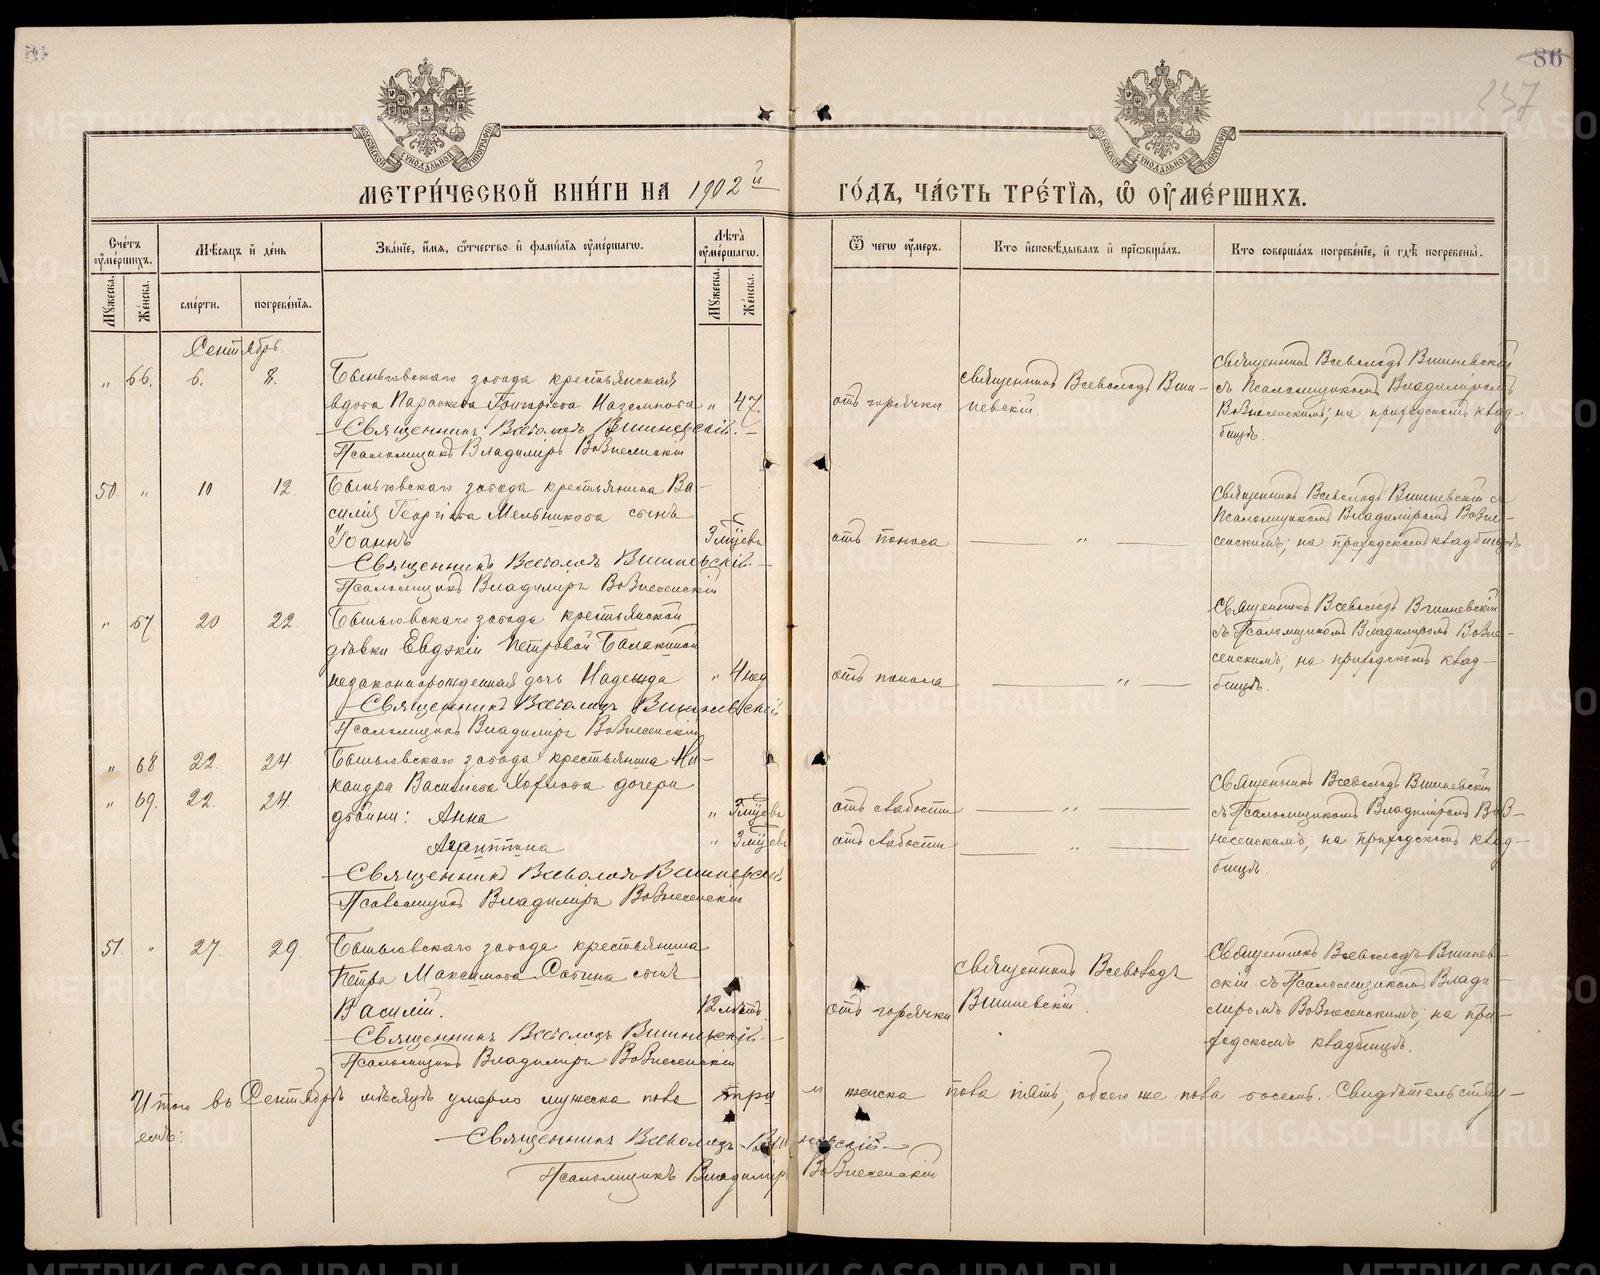 86
257
МОСКОВСКОЙ СУНОДАЛЬНОЙ ТИПОГРАФІИ
МОСКОВСКОЙ СУНОДАЛЬНОЙ ТИПОГРАФІИ
МЕТРИ́ЧЕСКОЙ КНИ́ГИ НА 1902й ГО́ДЪ, ЧА́СТЬ ТРЕ́ТІЯ, Ѿ ОУМЕ́РШИХЪ.
Сче́тъ оуме́ршихъ.
Мѣсяцъ и де́нь
Зва́ніе, имя, отчество и фами́лія оуме́ршаго.
Лѣта̀ оуме́ршаго.
Ѿ чего оумеръ.
Кто исповѣдывалъ и пріобща́лъ.
Кто соверша́лъ погребе́ніе, и гдѣ погребены̀.
Мужеска.
Же́нска.
сме́рти.
погребе́нія.
Мужеска.
Же́нска.
Сентябрь.
„ 66. 6. 8. Быньговскаго завода крестьянская
вдова Параскева Григорьева Наземнова „ 47
Священникъ Всеволодъ Вишневскій.
Псаломщикъ Владиміръ Вознесенскій
отъ горячки
священникъ Всеволодъ Виш-
невскій.
Священникъ Всеволодъ Вишневскій
съ Псаломщикомъ Владиміромъ
Вознесенскимъ; на приходскомъ клад-
бищѣ.
50. „ 10 12. Быньговскаго завода крестьянина Ва-
силія Георгіева Мельникова сынъ
Іоаннъ 3 мѣсяца
Священникъ Всеволодъ Вишневскій.
Псаломщикъ Владиміръ Вознесенскій
отъ поноса
— „ —
Священникъ Всеволодъ Вишневскій съ
Псаломщикомъ Владиміромъ Возне-
сенскимъ; на приходскомъ кладбищѣ.
„ 67 20. 22. Быньговскаго завода крестьянской
дѣвки Евдокіи Петровой Балакиной
незаконнорожденная дочь Надежда „ 4 нед
Священникъ Всеволодъ Вишневскій
Псаломщикъ Владиміръ Вознесенскій
отъ поноса
— „ —
Священникъ Всеволодъ Вишневскій
съ Псаломщикомъ Владиміромъ Возне-
сенскимъ; на приходскомъ клад-
бищѣ.
„ 68 22. 24. Быньговскаго завода крестьянина Ни-
„ 69. 22. 24. кандра Васильева дочери
двойни: Анна „
Агриппина „
Священникъ Всеволодъ Вишневскій
Псаломщикъ Владиміръ Вознесенскій
отъ слабости — „ —
отъ слабости — „ —
Священникъ Всеволодъ Вишневскій
съ Псаломщикомъ Владиміромъ Воз-
несенскимъ; на приходскомъ клад-
бищѣ.
51. „ 27. 29. Быньговскаго завода крестьянина
Петра Максимова Савина сынъ
Василій. 12 лѣтъ
Священникъ Всеволодъ Вишневскій.
Псаломщикъ Владиміръ Вознесенскій
отъ горячки
священникъ Всеволодъ
Вишневскій.
Священникъ Всеволодъ Вишнев-
скій съ Псаломщикомъ Влади-
міромъ Вознесенскимъ; на при-
ходскомъ кладбищѣ.
Итого въ Сентябрѣ мѣсяцѣ умерло мужеска пола три и женска пола пять; обоего же пола восемь. Свидѣтельству-
емъ:
Священникъ Всеволодъ Вишневскій
Псаломщикъ Владиміръ Вознесенскій
METRIKI.GASO-URAL.RU